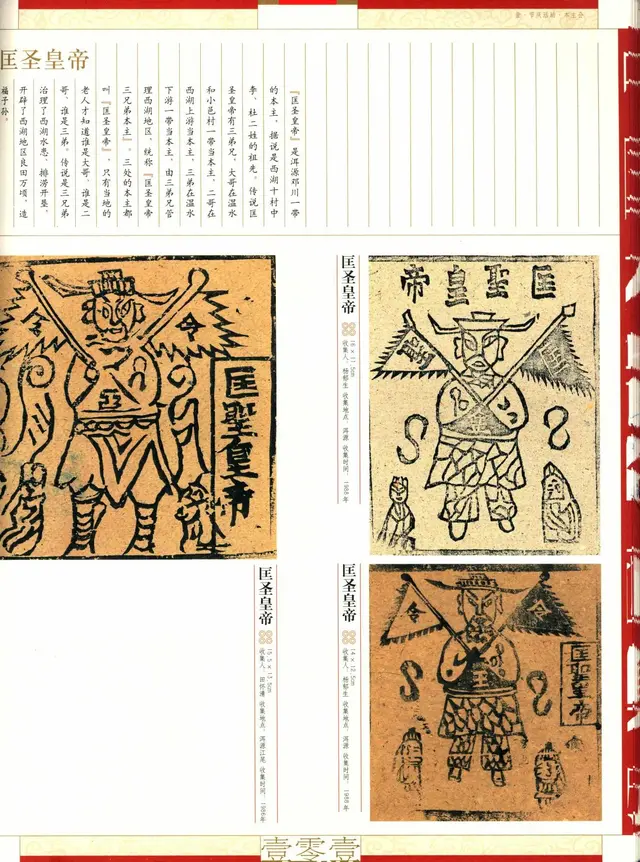 匡圣皇帝
『匡圣皇帝』是洱源邓川一带
的本主，据说是西湖十村中
李、杜二姓的祖先。传说匡
圣皇帝有三弟兄，大哥在温水
和小邑村一带当本主，二哥在
西湖上游当本主，三弟在温水
下游一带当本主，由三弟兄管
理西湖地区，统称『匡圣皇帝
三兄弟本主』。三处的本主都
叫『匡圣皇帝』，只有当地的
老人才知道谁是大哥、谁是二
哥、谁是三弟。传说是三弟兄
治理了西湖水患，排涝开垦，
开辟了西湖地区良田万顷，造
福子孙。
帝皇聖匡
聖
匡
匡圣皇帝
16×11.5cm
收集人：杨郁生 收集地点：洱源 收集时间：
令
令
匡聖皇帝
令
令
匡聖皇帝
匡圣皇帝
14×12.5cm
收集人：杨郁生 收集地点：洱源 收集时间：
匡圣皇帝
15.5×13.5cm
收集人：田怀清 收集地点：洱源江尾 收集时间：
壹零壹